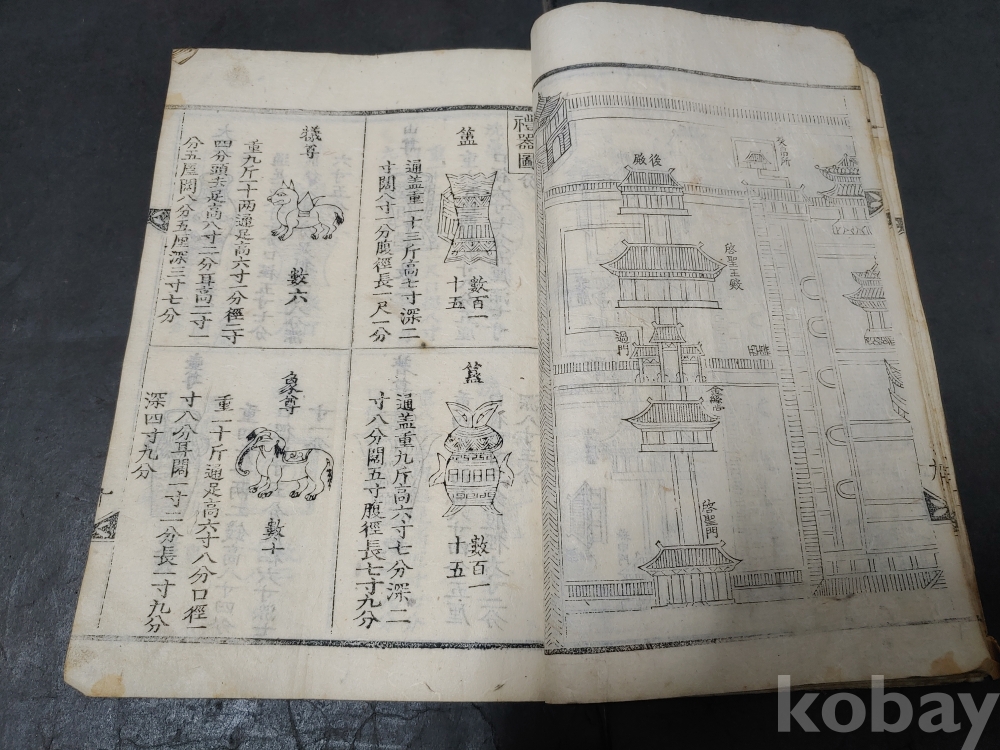 後殿
啓聖王殿
過門
金絲堂
啓聖門
禮器圖
簠
數百一
十五
通盖重一十三斤高七寸深二
寸闊八寸一分腹徑長一尺一分
簋
數百一
十五
通盖重九斤高六寸七分深二
寸八分闊五寸腹徑長七寸九分
犧尊
數六
重九斤一十兩通足高六寸一分徑二寸
四分頭去足高八寸二分耳高二寸一
分五厘闊八分五厘深三寸七分
象尊
數十
重一十斤通足高六寸八分口徑一
寸八分耳闊一寸二分長二寸九分
深四寸九分
kobay